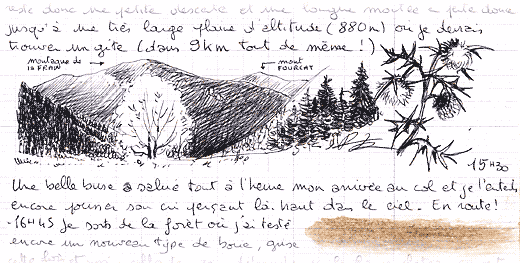 donc une petite descente et une longue montée a pied donc
jusqu'à une très large plaine d'altitude (880m) où je devrais
trouver un gîte (dans 9km tout de même !)
montagne de
la FRAU
mont
FOURCAT
15H30
Une belle buse a salué tout à l'heure mon arrivée au col et je l'entends
encore pousser son cri perçant là. haut dans le ciel. En route!
-16H45 Je sors de la forêt où j'ai testé
encore un nouveau type de boue, grise